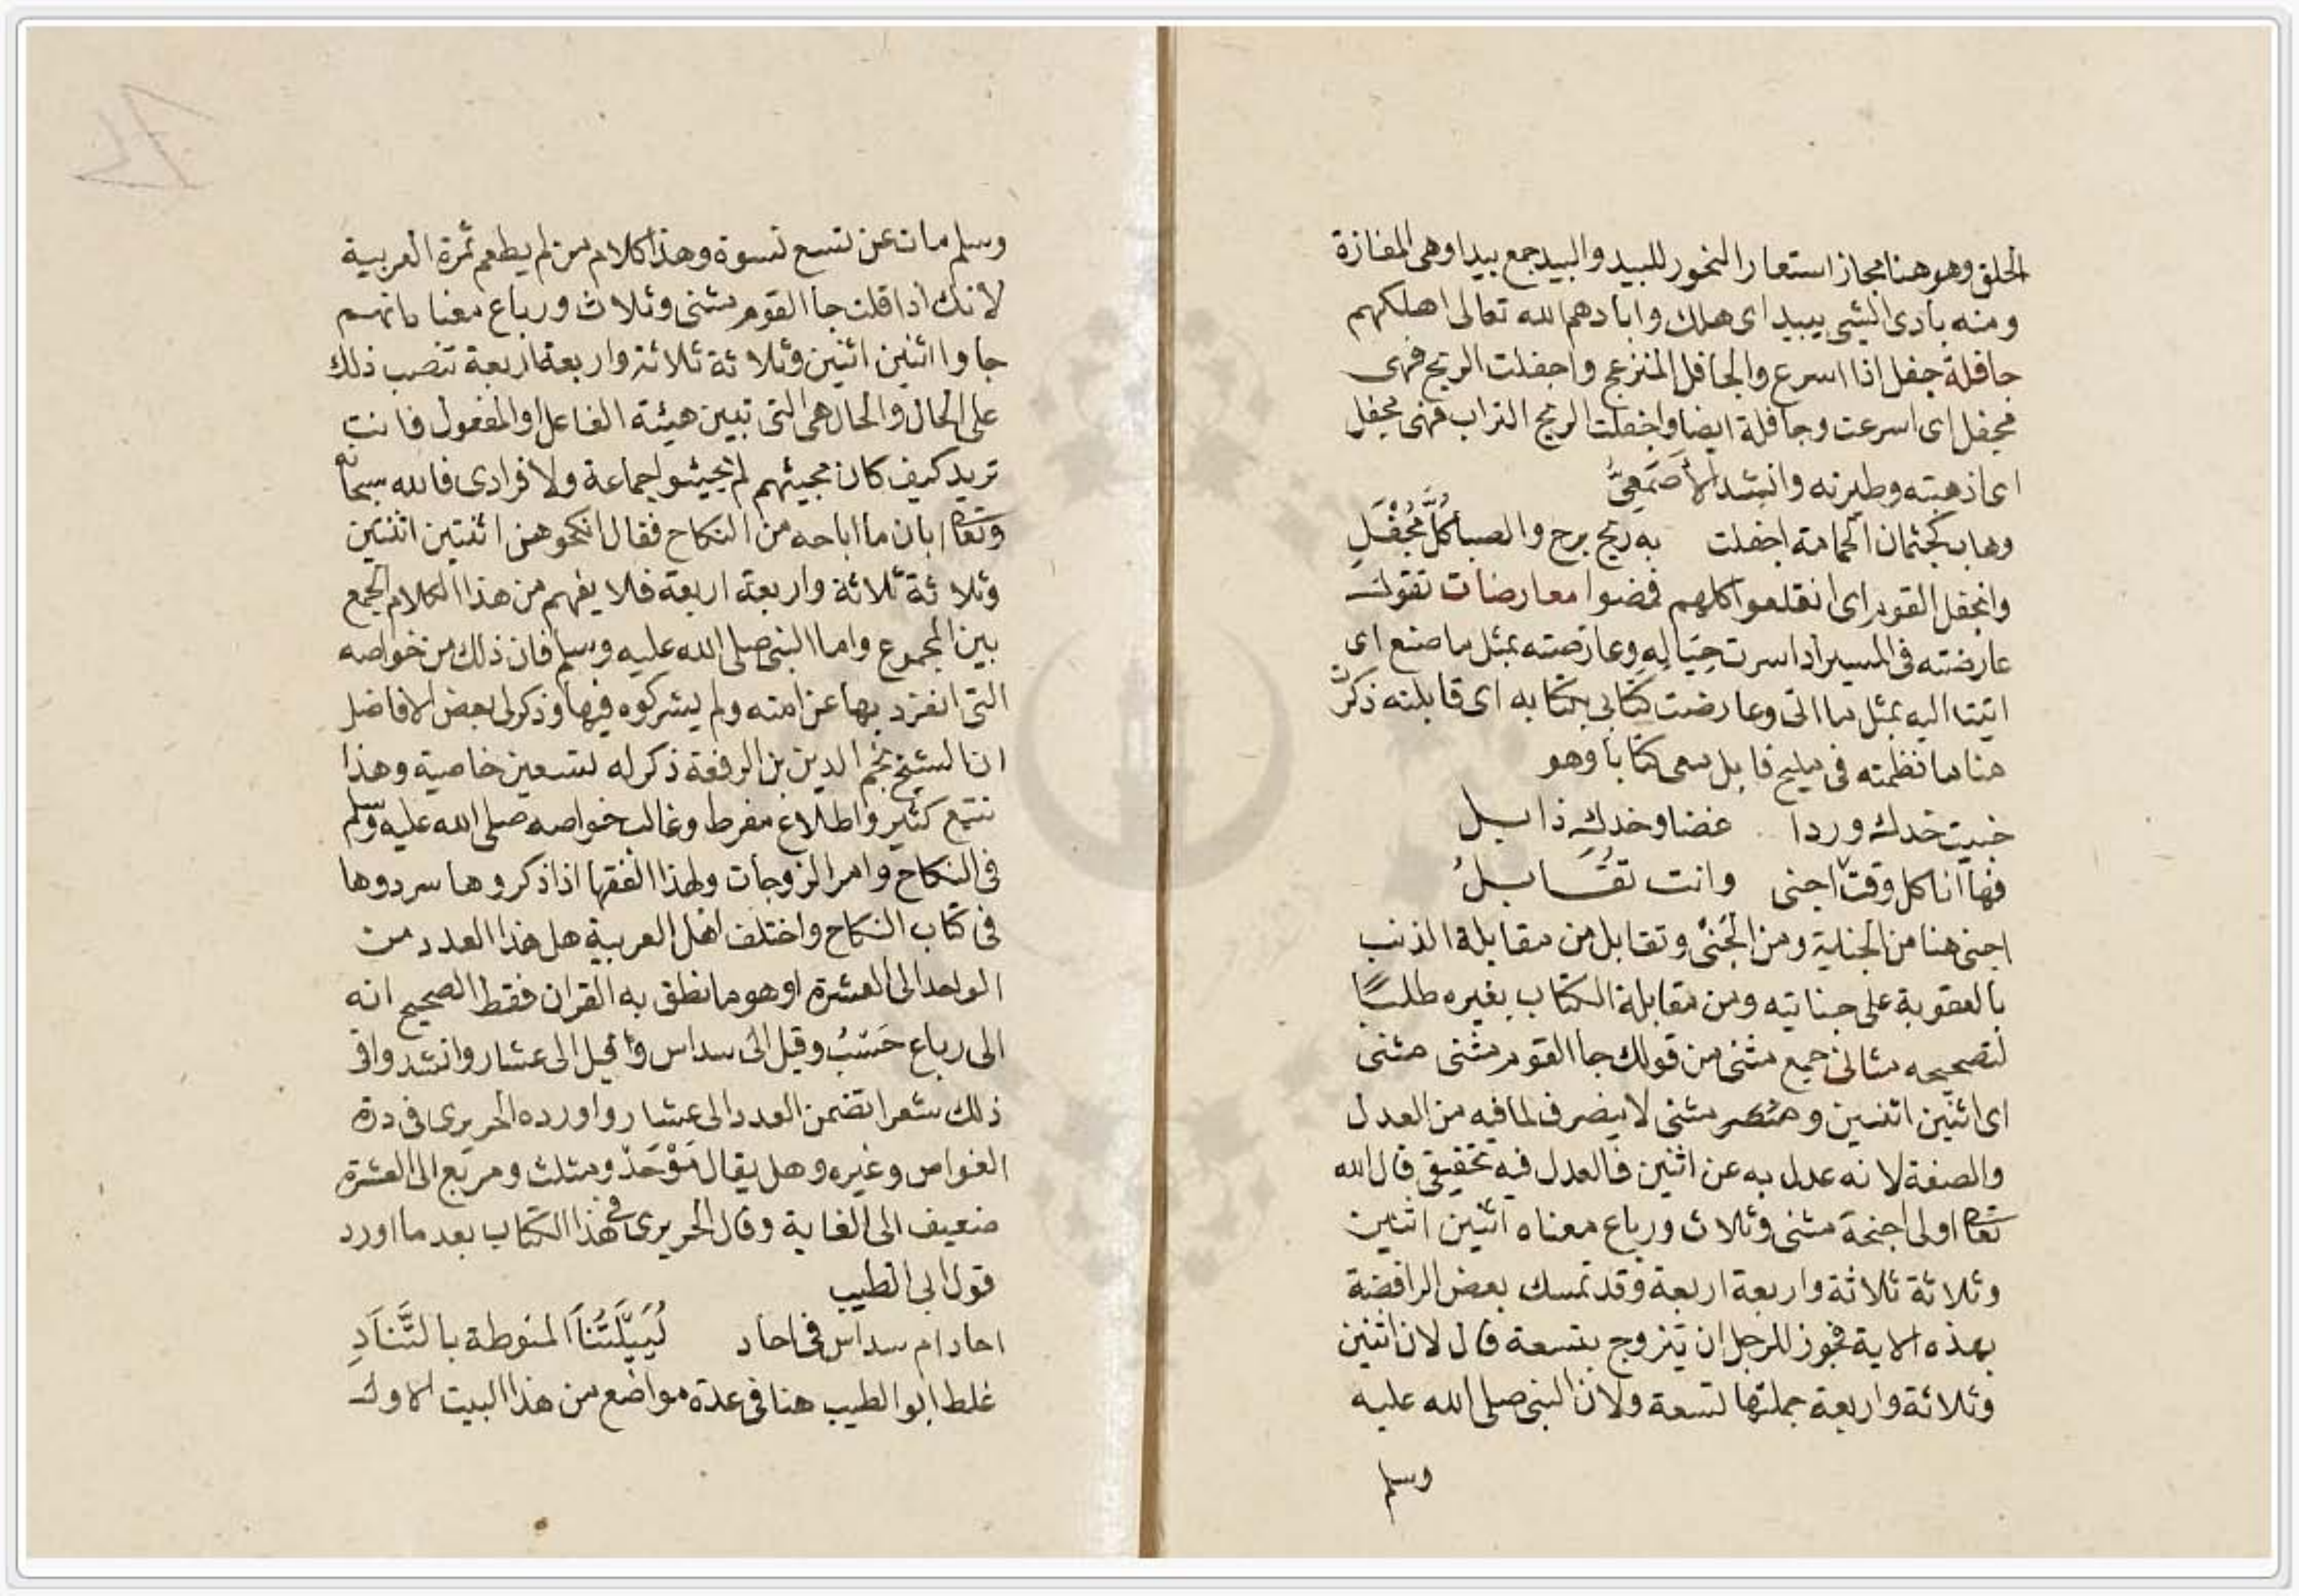 الحلق وهو هنا مجاز استعار النحور للبيد والبيد جمع بيدا وهى المفازة
ومنه بادى الشى يبيد اى هلك وابادهم الله تعالى اهلكهم
جافلة جفل اذا اسرع والجافل المنزعج واجفلت الريح فهى
مجفل اى اسرعت وجافلة ايضا واجفلت الريح التراب فهى مجفل
اى اذهبته وطيرته وانشد الأصْمَعِىُّ
وهاب كجثمان الحمامة اجفلت به ريح برج والصبا كُلَّ مُجْفَلِ
وانجفل القوم اى انقلعوا كلهم فمضوا معارضات تقول
عارضته فى المسير اذا سرت حِيَالِهِ وعارضته بمثل ما صنع اى
اتيت اليه بمثل ما اتى وعارضت كتابى بكتابه اى قابلته ذكرت
هنا ما نظمته فى مليح قابل معى كتابا وهو
خبيت خدك وردا غضا وخدك ذابل
فها انا كل وقت اجنى وانت تُقَابلُ
اجنى هنا من الجناية ومن الجَنىْ وتقابل من مقابلة الذنب
بالعقوبة على جنايته ومن مقابلة الكتاب بغيره طلبًا
لتصحيحه مثانى جمع مثنى من قولك جا القوم مثنى مثنى
اى اثنين اثنين و مثنى لا ينصرف لما فيه من العدل
والصفة لانه عدل به عن اثنين فالعدل فيه تحقيقى قال الله
تعا اولى اجنحة مثنى وثلاث ورباع معناه اثنين اثنين
وثلاثة ثلاثة واربعة اربعة وقد تمسك بعض الرافضة
بهذه الاية فجوز للرجل ان يتزوج بتسعة قال لان اثنين
وثلاثة واربعة جملتها تسعة ولان النبى صلى الله عليه
وسلم
وسلم مات عن تسع نسوة وهذا كلام من لم يطعم ثمرة العربية
لانك اذا قلت جا القوم مثنى وثلاث ورباع معناه انهم
جاوا اثنين اثنين وثلاثة ثلاثة واربعة اربعة تنصب ذلك
على الحال والحال هى التى تبين هيئة الفاعل او المفعول فانت
تريد كيف كان مجيئهم لم يجيئوا جماعة ولا فرادى فالله سبحانه
وتعا ابان ما اباحه من النكاح فقال انكحوهن اثنتين اثنتين
وثلاثة ثلاثة واربعة اربعة فلا يفهم من هذا الكلام الجمع
بين المجموع واما النبى صلى الله عليه وسلم فان ذلك من خواصه
التى انفرد بها عن امته ولم يشركوه فيها وذكر لى بعض الافاضل
ان الشيخ نجم الدين بن الرفعة ذكر له تسعين خاصية وهذا
تتبع كثير واطلاع مفرط وغالب خواصه صلى الله عليه وسلم
فى النكاح وامر الزوجات ولهذا الفقها اذا ذكروها سردوها
فى كتاب النكاح واختلف اهل العربية هل هذا العدد من
الواحد الى العشرة او هو ما نطق به القران فقط الصحيح انه
الى رباع حَسْبُ وقيل الى سداس وقيل الى عشار وانشدوا فى
ذلك شعرا تضمن العدد الى عشار واورده الحريرى فى درة
الغواص وغيره وهل يقال مَوْحَدْ ومثلث ومربع الى العشرة
ضعيف الى الغاية وقال الحريرى فى هذا الكتاب بعد ما اورد
قول ابى الطيب
احاد ام سداس فى احاد لُيَيْلَتُنَا المنوطة بالتَّنَادِ
غلط ابو الطيب هنا فى عدة مواضع من هذا البيت الاول